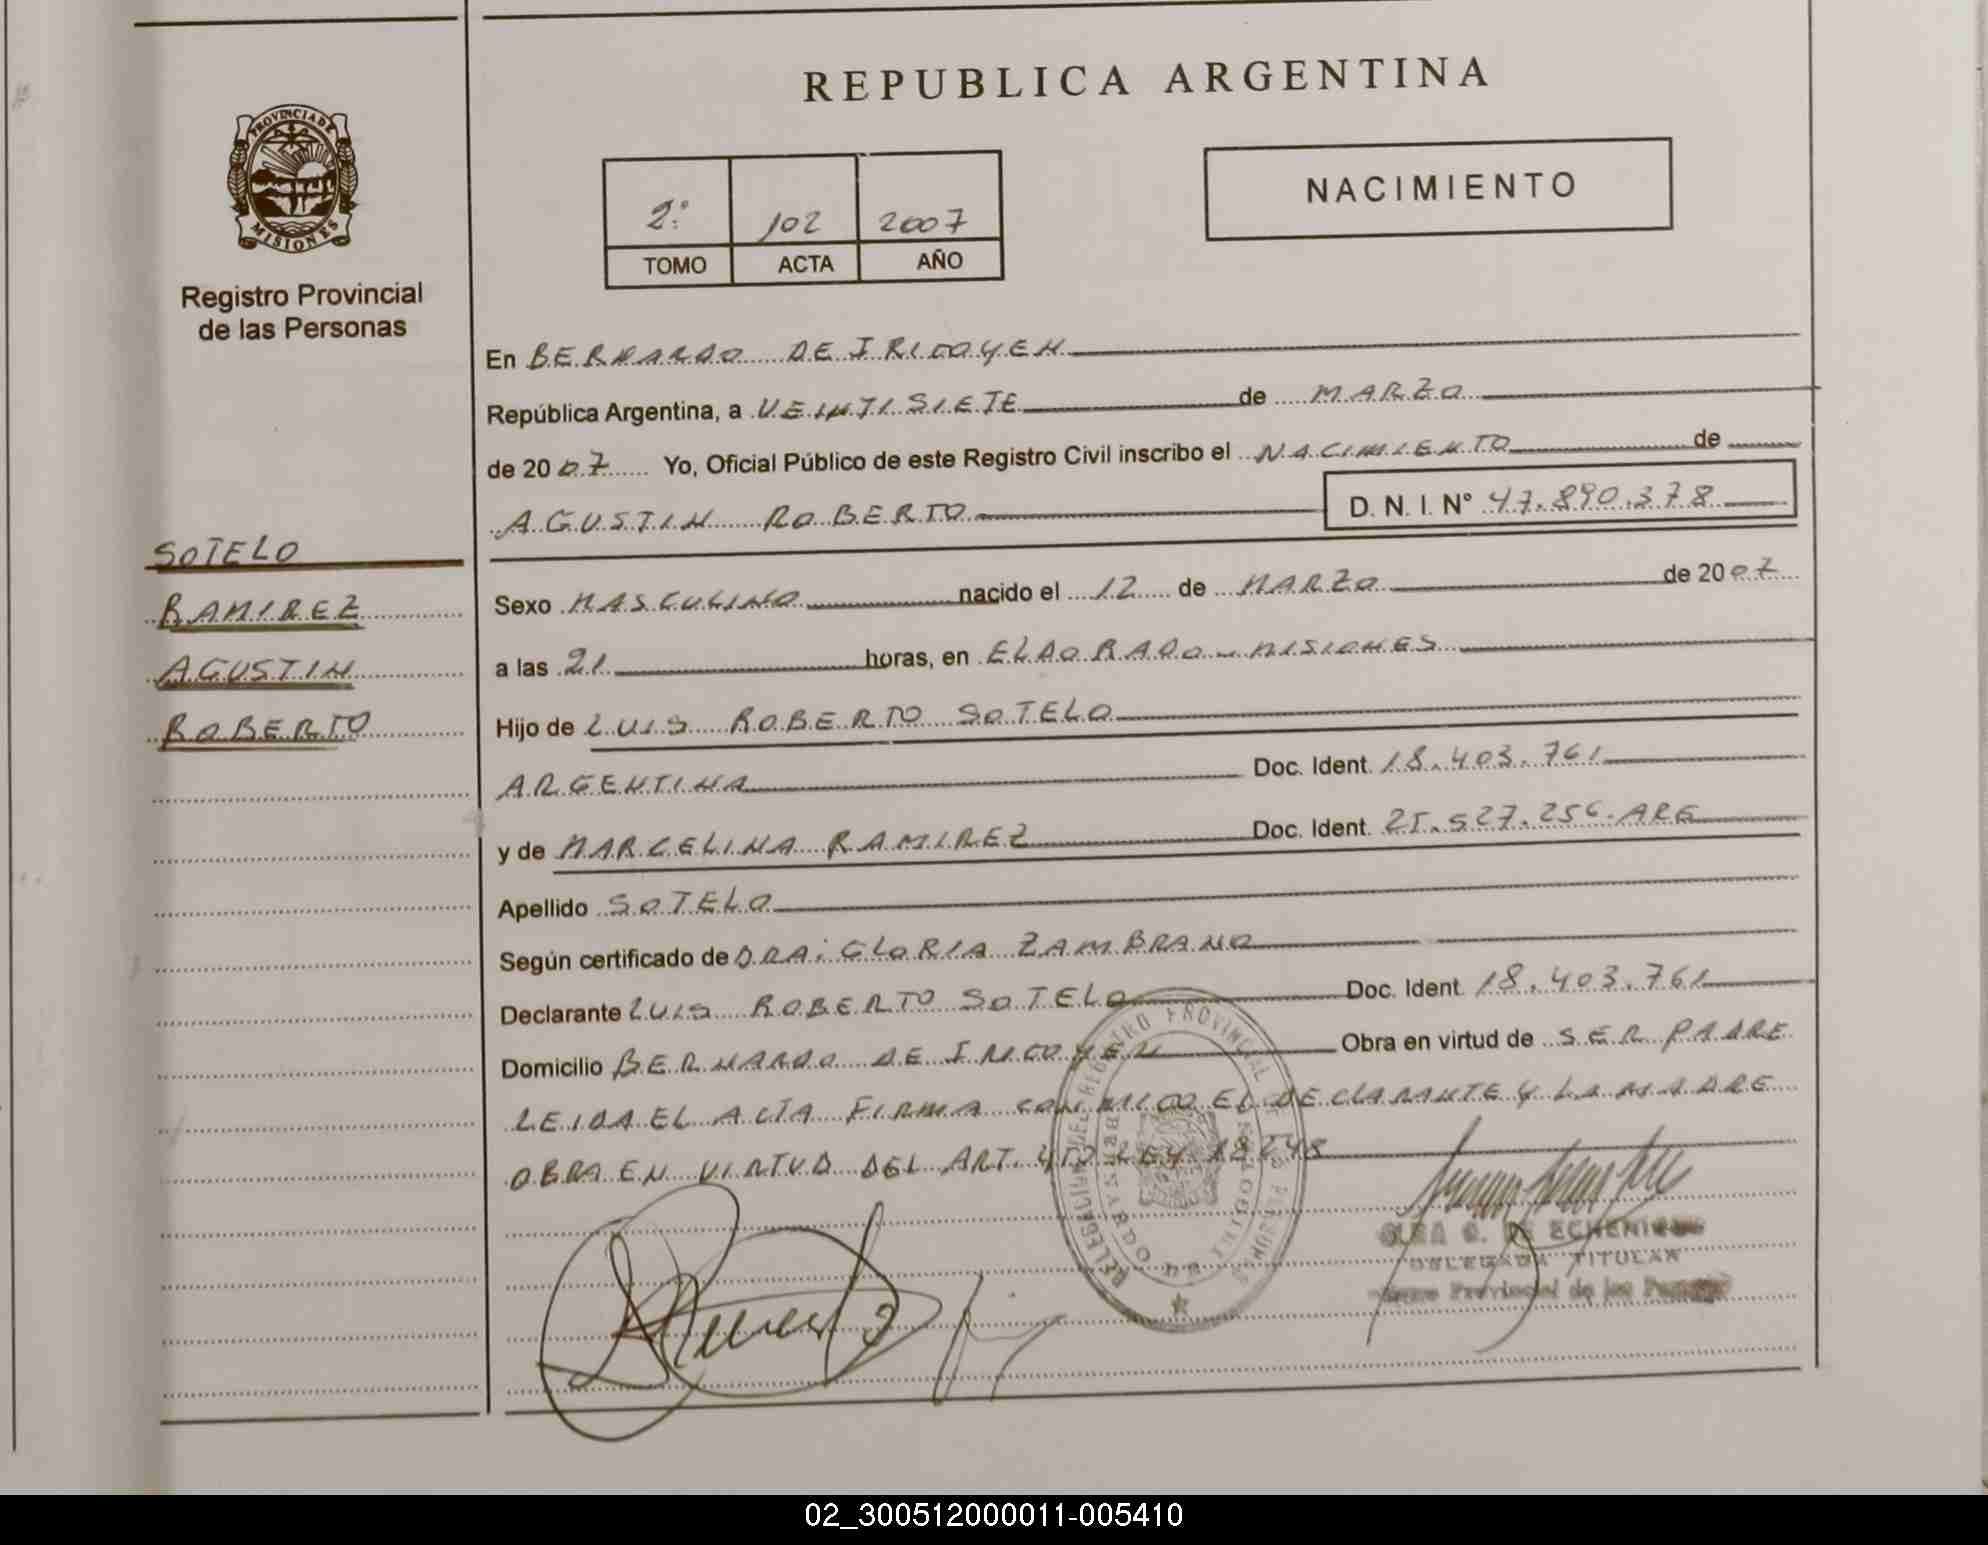 REPUBLICA ARGENTINA
PROVINCIA DE
MISIONES
Registro Provincial
de las Personas
2º 102 2007
TOMO ACTA AÑO
NACIMIENTO
SOTELO
RAMIREZ
AGUSTIN
ROBERTO
En BERNARDO DE IRIGOYEN
República Argentina, a VEINTISIETE de MARZO
de 2007 Yo, Oficial Público de este Registro Civil inscribo el NACIMIENTO de
AGUSTIN ROBERTO D. N. I. Nº 47.890.378
Sexo MASCULINO nacido el 12 de MARZO de 2007
a las 21 horas, en ELDORADO - MISIONES
Hijo de LUIS ROBERTO SOTELO
ARGENTINA Doc. Ident. 18.403.761
y de MARCELINA RAMIREZ Doc. Ident. 25.527.256 ARG
Apellido SOTELO
Según certificado de DRA: GLORIA ZAMBRANO
Declarante LUIS ROBERTO SOTELO Doc. Ident. 18.403.761
Domicilio BERNARDO DE IRIGOYEN Obra en virtud de SER PADRE
LEIDA EL ACTA FIRMA CONMIGO EL DECLARANTE Y LA MADRE
OBRA EN VIRTUD DEL ART. LEY 18248
DE ECHENIQUE
DELEGADA TITULAR
Provincial de las Personas
02_300512000011-005410